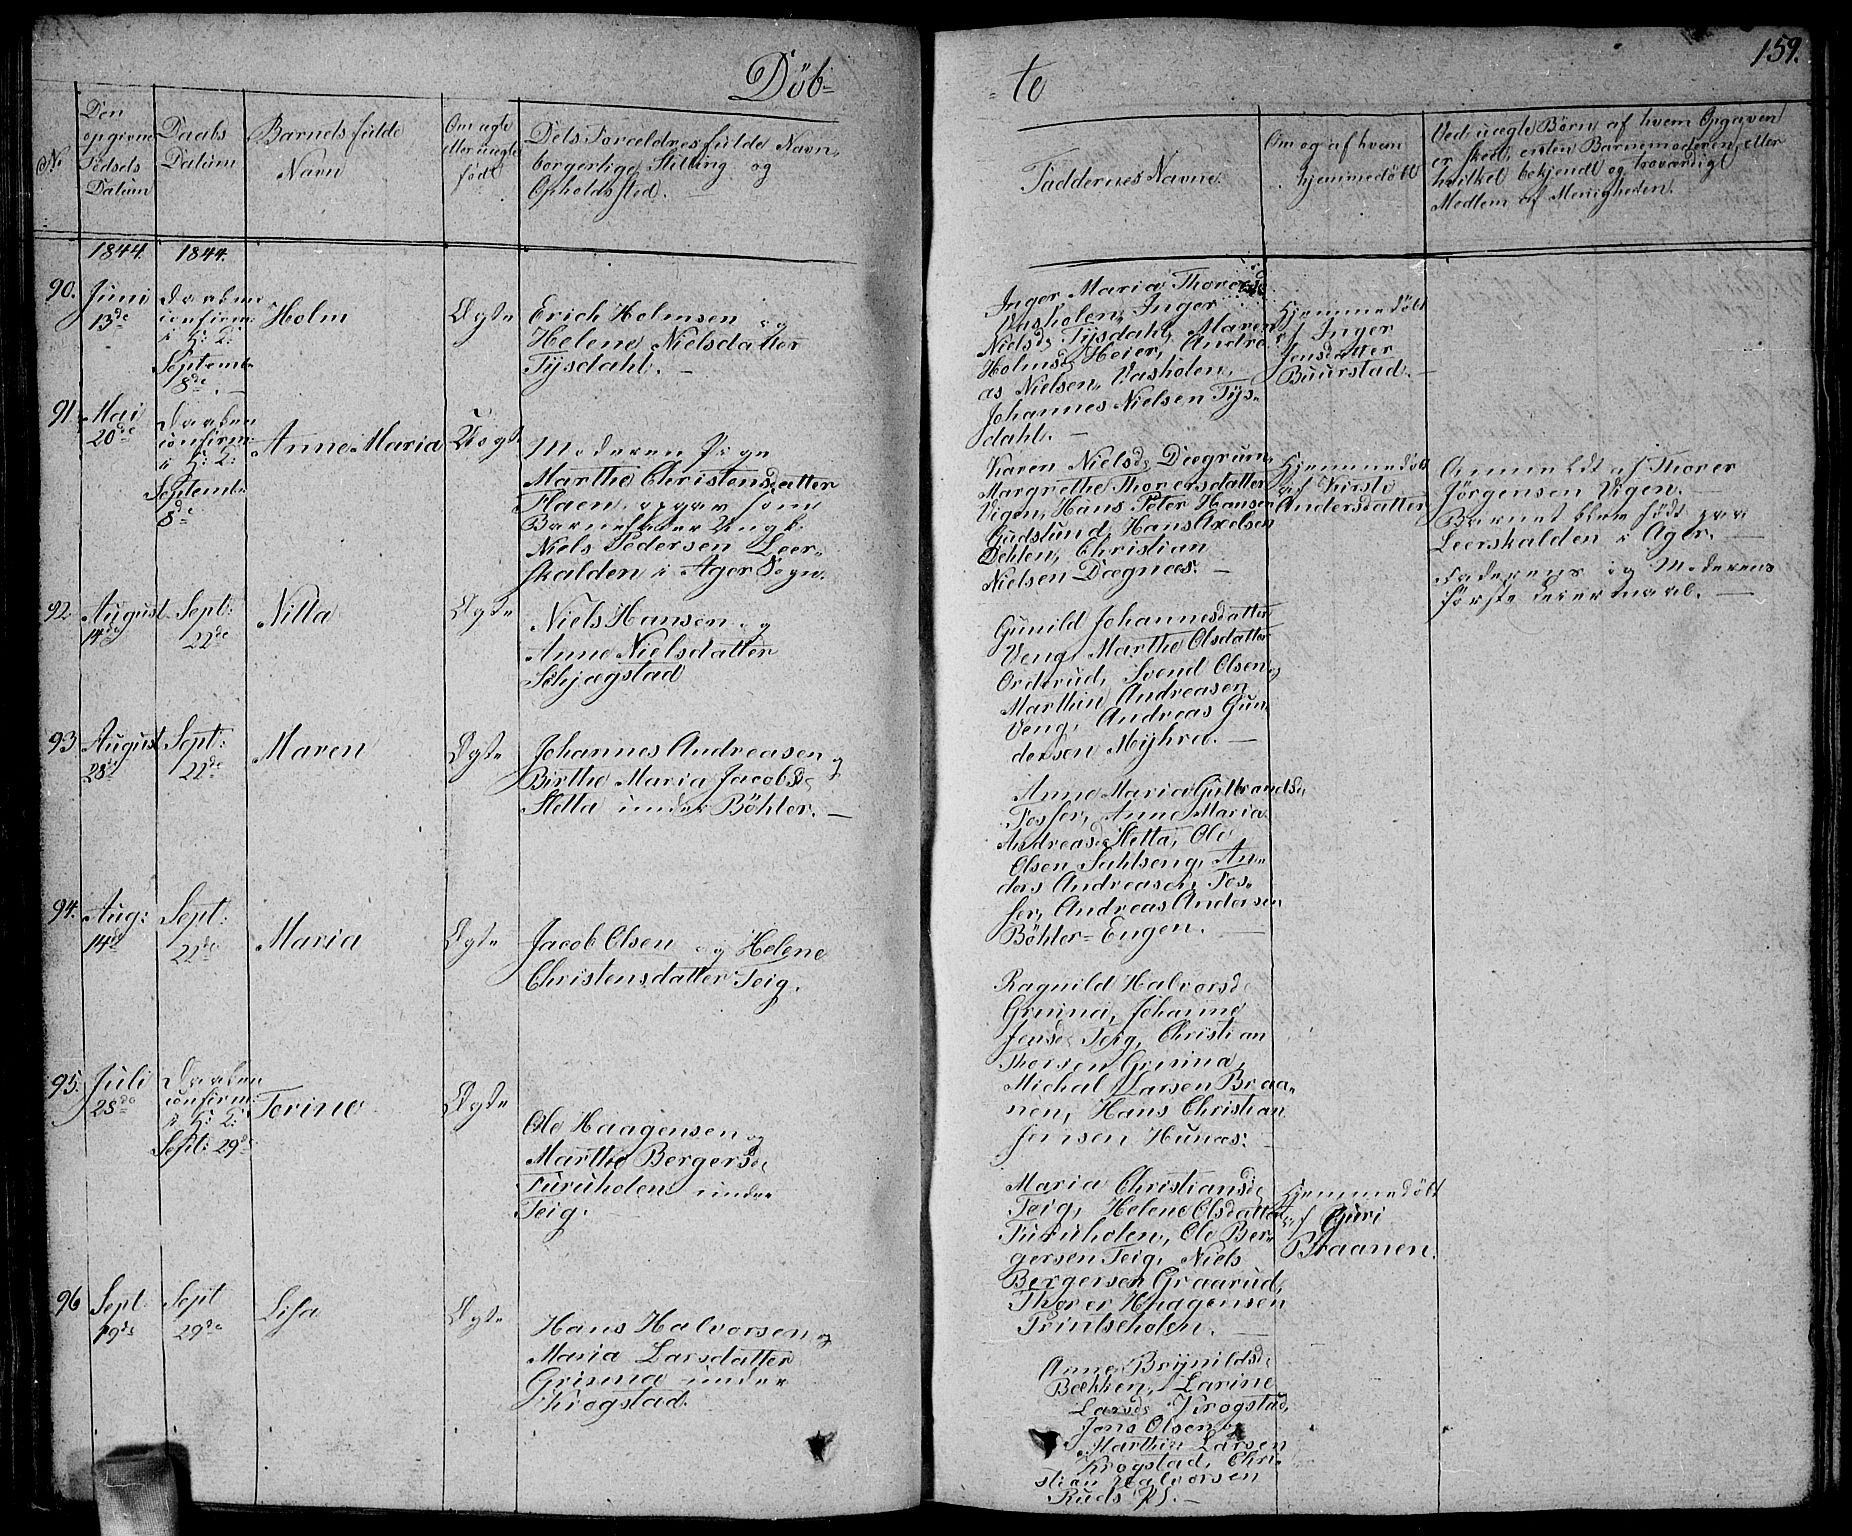 Döb=
=te
159.
No
Den opgivne Födsels Datum
Daabs Datum
Barnets fulde Navn
Om ægte eller uægte född
Dets Forældres fulde Navn, borgerlige Stilling og Opholdssted.
Faddernes Navne.
Om og af hvem hjemmedöbt
Ved uægte Börn af hvem Opgaven er skeet, enten Barnemoderen, eller hvilket bekjendt og troværdigt Medlem af Menigheden.
1844.
1844.
90.
Juni
13de
Daaben
confirm:
i H: K:
Septembr
8de
Holm
Ægte
Erich Holmsen og
Helene Nielsdatter
Tÿsdahl. –
Inger Maria Thorersd
Vasholen, Inger
Nielsd: Tÿsdahl, Maren
Holmsd: Heier, Andre-
as Nielsen, Vasholen,
Johannes Nielsen Tÿs-
dahl. –
Hjemmedöbt
af Inger
Jensdatter
Buurstad. –
91.
Mai
20de
Daaben
confirm:
i H: K:
Septembr
8de
Anne Maria
Uægte
Moderen Pige
Marthe Christensdatter
Flaen, opgav som
Barnefader Ungk:
Niels Pedersen Leer-
skalden i Ager Sogn.
Karen Nielsd:
Margrethe Thorersdatter
Vigen, Hans Peter Hansen
Gudslund, Hans Axelsen
Dehlen, Christian
Nielsen Dægnæs. –
Hjemmedöbt
af Kirste
Andersdatter
Anmeldt af Thorer
Jörgensen Vigen. –
Barnet blev födt paa
Leerskalden i Ager. –
Faderens og Moderens
förste Leiermaal. –
92.
August
14de
Sept:
22de
Nilla
Ægte
Niels Hansen og
Anne Nielsdatter
Schjægstad
Gunild Johannesdatter
Veng, Marthe Olsdatter
Ordrud, Svend Olsen,
Marthin Andreasen
Veng, Andreas Gun-
dersen Mÿhra. –
93.
August
28de
Sept:
22de
Maren
Ægte
Johannes Andreasen og
Birthe Maria Jacobsd:
Sletta under Böhler. –
Anne Maria Gulbrandsd:
Fosser, Anne Maria
Andreasd: Sletta, Ole
Olsen Sahlseng, An-
ders Andreasen, Fos-
ser, Andreas Andersen
Böhler=Engen. –
94.
Aug:
14de
Sept:
22de
Maria
Ægte
Jacob Olsen og Helene
Christensdatter Teig.
Ragnild Halvorsd:
Grinna, Johanne
Jensd: Teig, Christian
Thorsen Grinna,
Michal Larsen Braa-
nen, Hans Christian
Jensen Hunæs: –
95.
Juli
28de
Daaben
confirm:
i H: K:
Sept: 29de
Torine
Ægte
Ole Haagensen og
Marthe Bergersd:
Furuholen under
Teig.
Maria Christiansd:
Teig, Helene Olsdatter
Furuholen, Ole Ber-
gersen Teig, Niels
Bergersen Graarud,
Thorer Haagensen
Printseholen. –
Hjemmedöbt
af Guri
Braanen.
96
Sept.
19de
Sept
29de
Lisa
Ægte
Hans Halvorsen og
Maria Larsdatter
Grinna under
Krogstad.
Anne Brÿnildsd:
Bækken, Larine
Larsd: Krogstad,
Jens Olsen og
Marthin Larsen
Krogstad, Chri-
stian Halvorsen